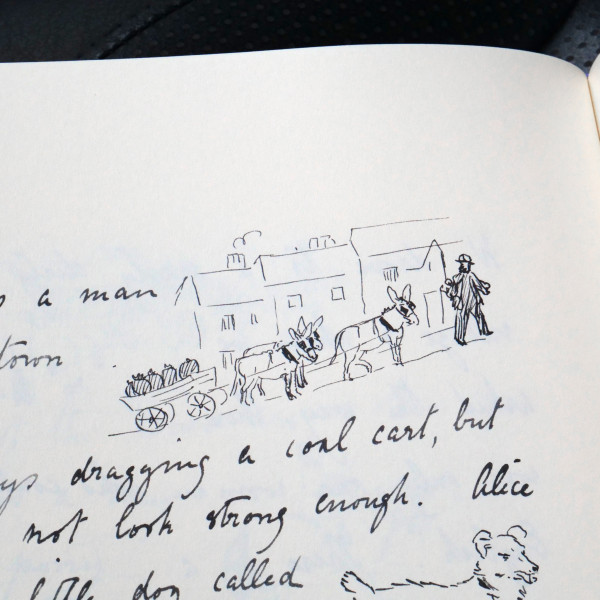 a man
town
dragging a coal cart, but
not look strong enough. Alice
little dog called